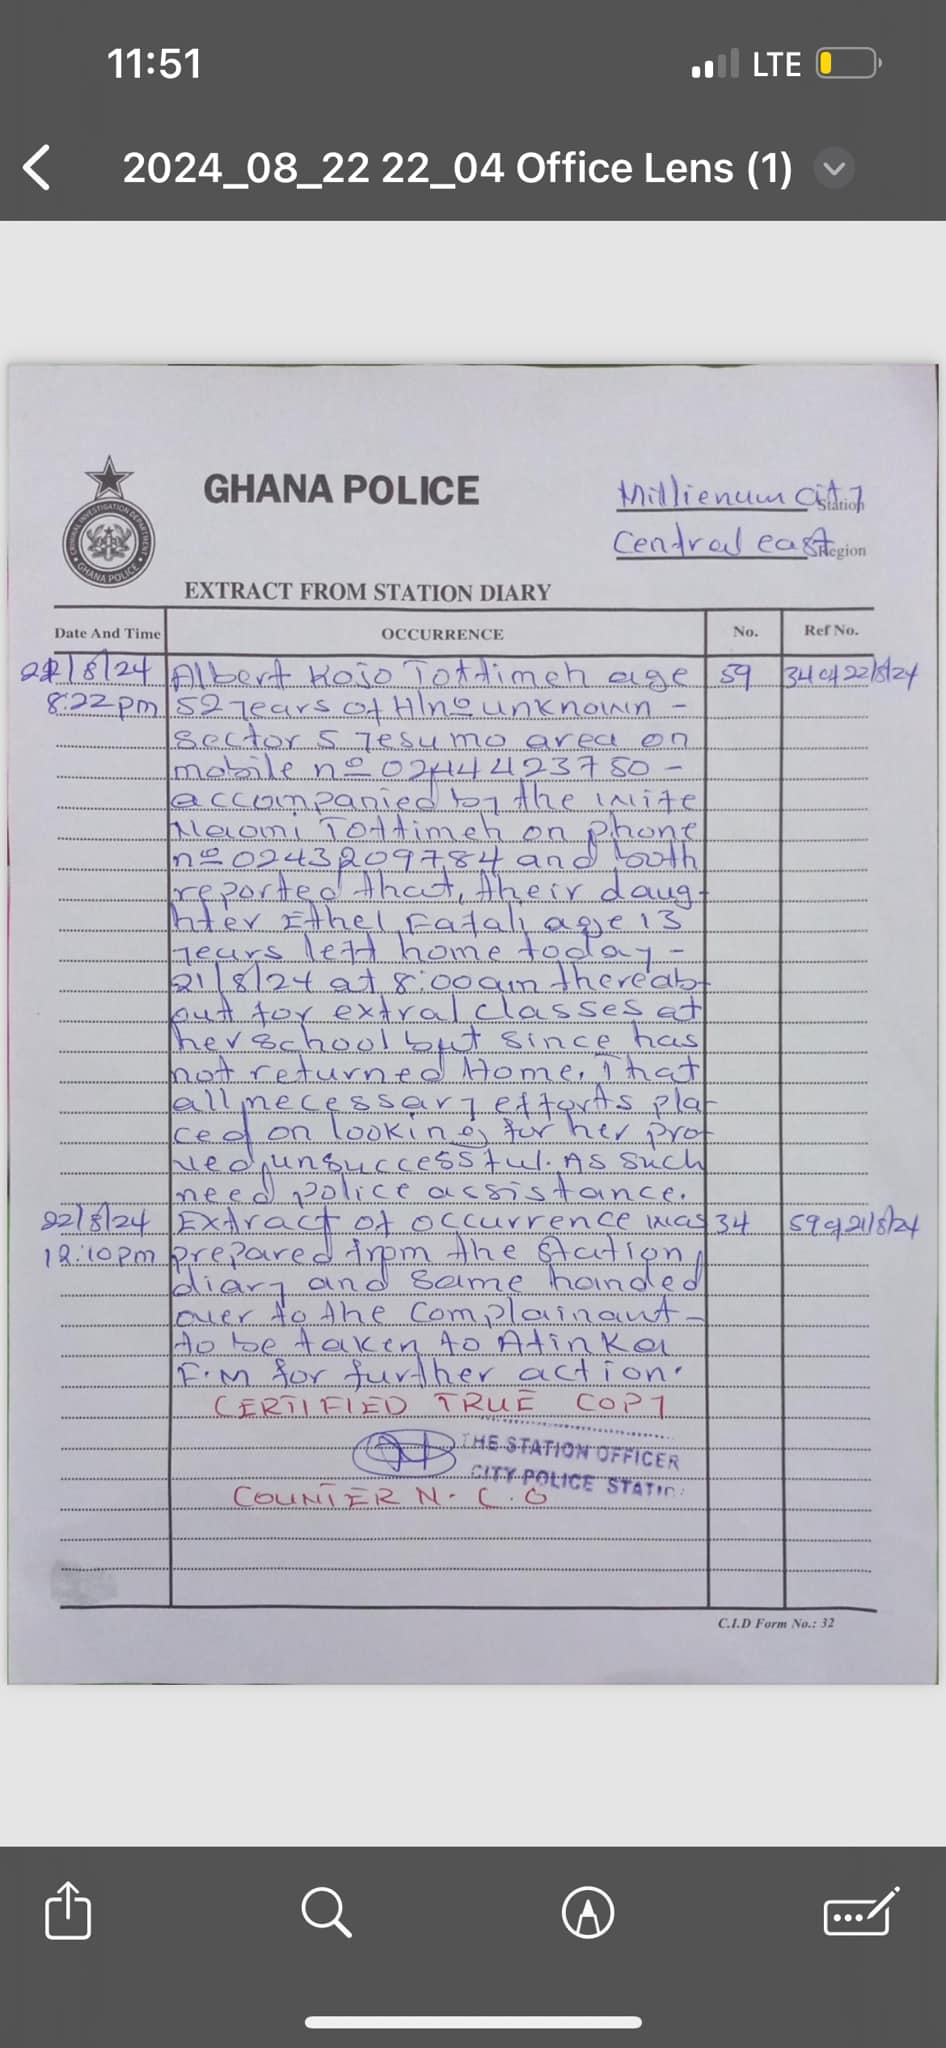 11:51
LTE
2024_08_22 22_04 Office Lens (1)
CRIMINAL INVESTIGATION DEPARTMENT
GHANA POLICE
GHANA POLICE
Millienum City Station
Central east Region
EXTRACT FROM STATION DIARY
Date And Time OCCURRENCE No. Ref No.
21/8/24 Albert Kojo Tottimeh age 59 34 of 22/8/24
8:22pm 52 years of H/no unknown -
Sector 5 Yesumo area on
mobile no 0244423750 -
accompanied by the wife
Naomi Tottimeh on phone
no 0243209784 and both
reported that, their daug-
hter Ethel Fafali age 13
years left home today -
21/8/24 at 8:00am thereab-
out for extral classes at
her school but since has
not returned Home. That
all necessary efforts pla-
ced on looking for her pro-
ved unsuccessful. As such
need police assistance.
22/8/24 Extract of occurrence was 34 59 of 21/8/24
12:10pm prepared from the station
diary and same handed
over to the complainant -
to be taken to Atinka
F.M for further action.
CERTIFIED TRUE COPY
THE STATION OFFICER
CITY POLICE STATIO
COUNTER N.C.O
C.I.D Form No.: 32